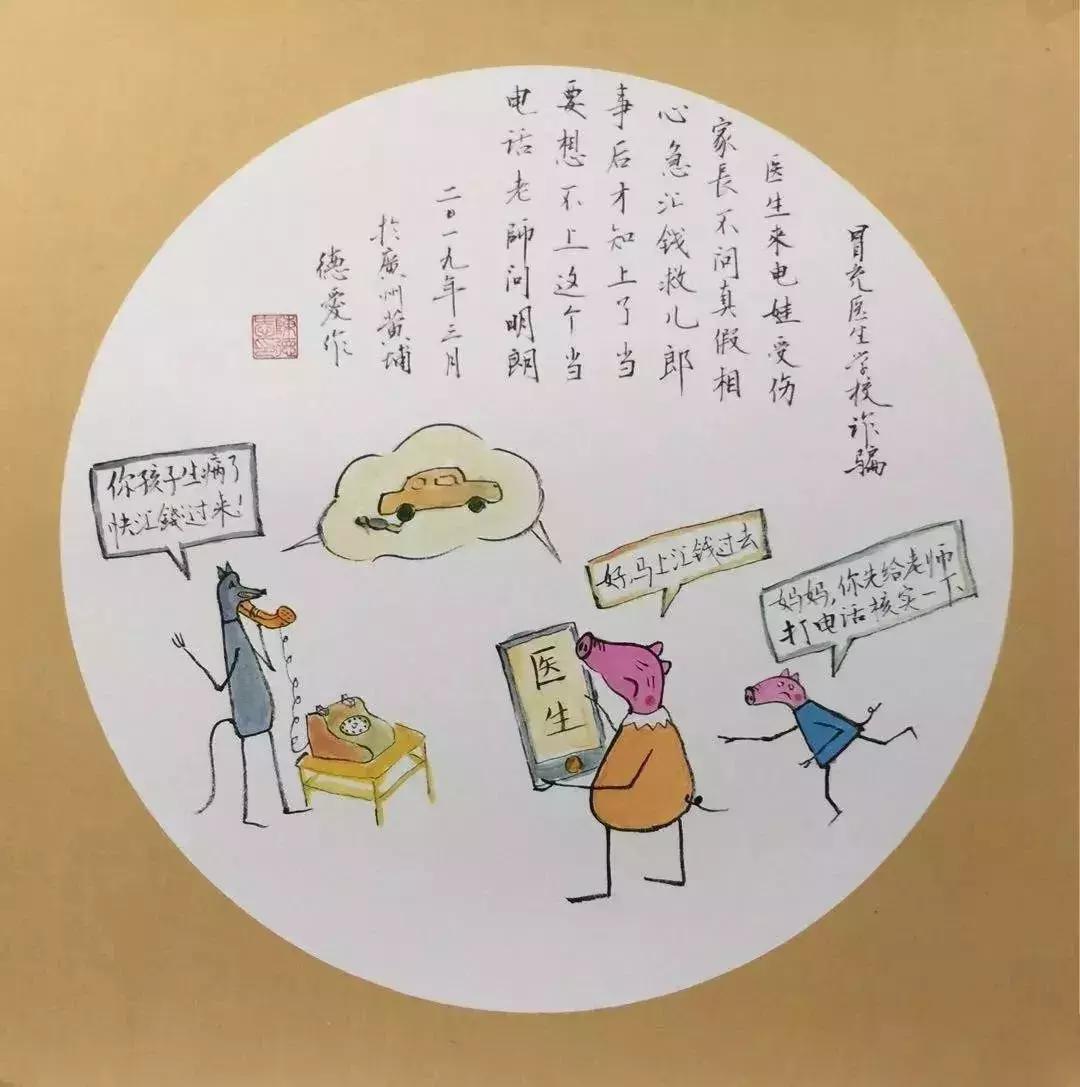 冒充医生学校诈骗
医生来电娃受伤
家長不问真假相
心急汇钱救儿郎
事后才知上了当
要想不上这个当
电话老師问明朗
二0一九年三月
於廣州黄埔
德爱作
你孩子生病了
快汇錢过来!
好,马上汇钱过去
妈妈,你先给老师
打电话核实一下
医生